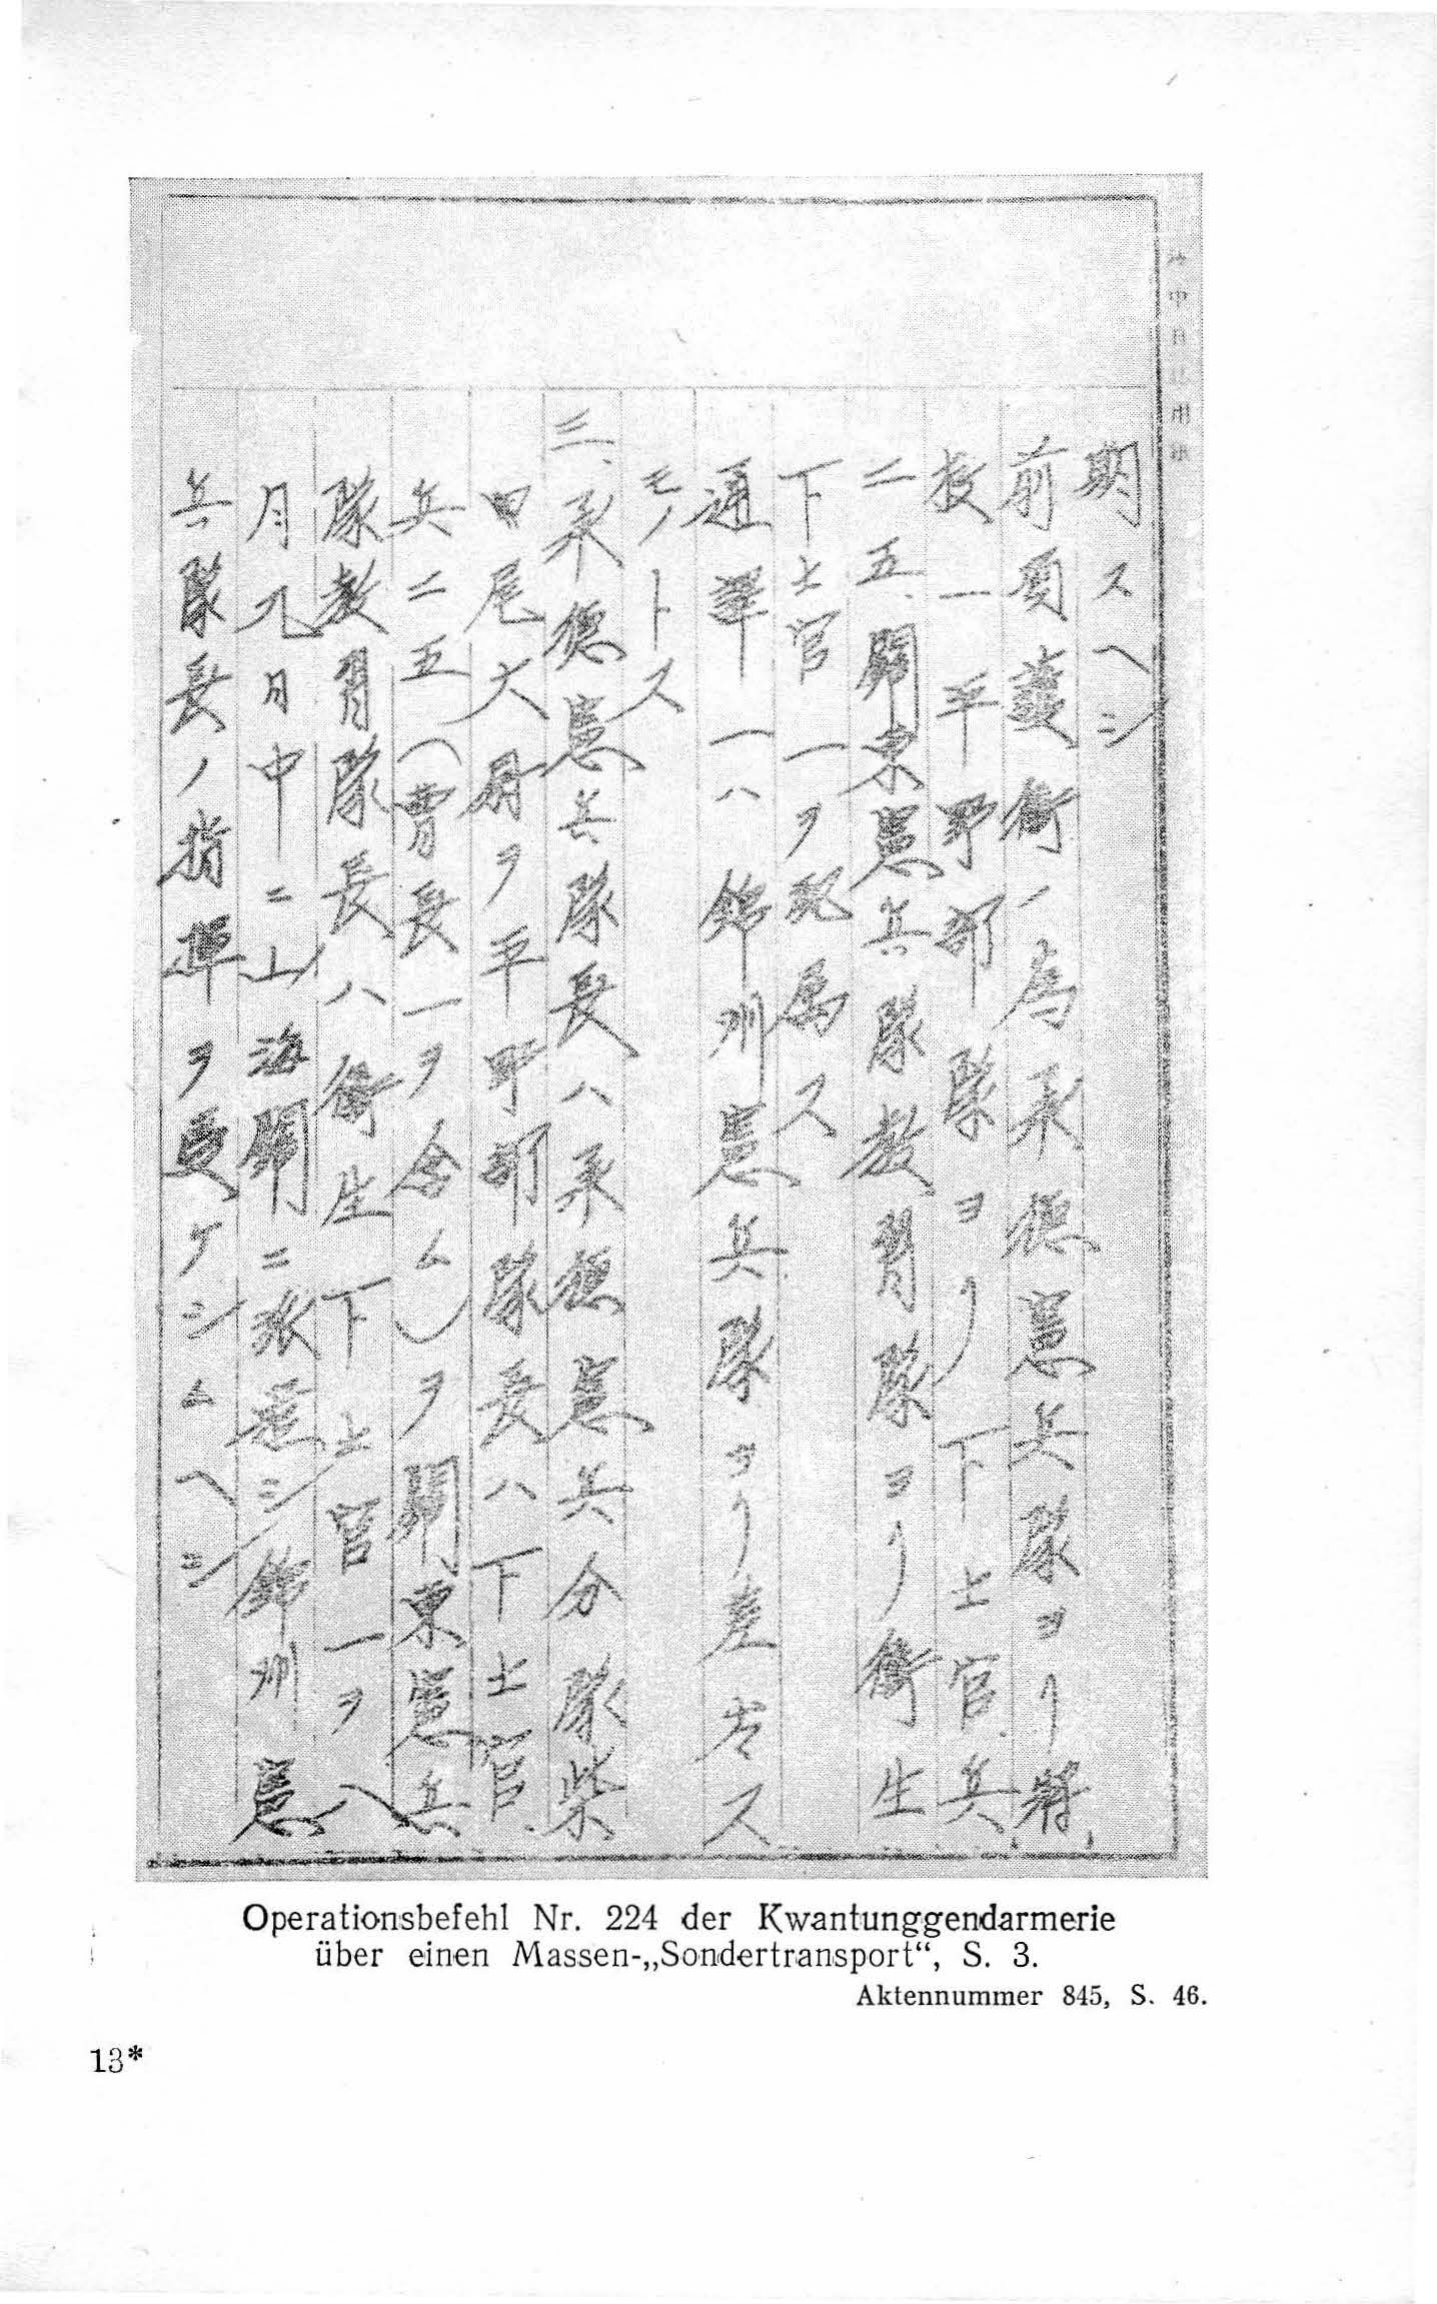 期スヘシ
前項護衛ノ為承徳憲兵隊ヨリ将
校一平野部隊ヨリ下士官兵
二五、関東憲兵隊教習隊ヨリ衛生
下士官一ヲ配属ス
通訳一ハ錦州憲兵隊ヨリ差出ス
モノトス
三、承徳憲兵隊長ハ承徳憲兵分隊柴
田尾大尉ヲ平野部隊長ハ下士官、
兵二五(曹長一ヲ含ム)ヲ関東憲兵
隊教習隊長ハ衛生下士官一ヲ八
月九日中ニ山海関ニ派遣シ錦州憲
兵隊長ノ指揮ヲ受ケシムヘシ
Operationsbefehl Nr. 224 der Kwantunggendarmerie
über einen Massen-„Sondertransport“, S. 3.
Aktennummer 845, S. 46.
13*